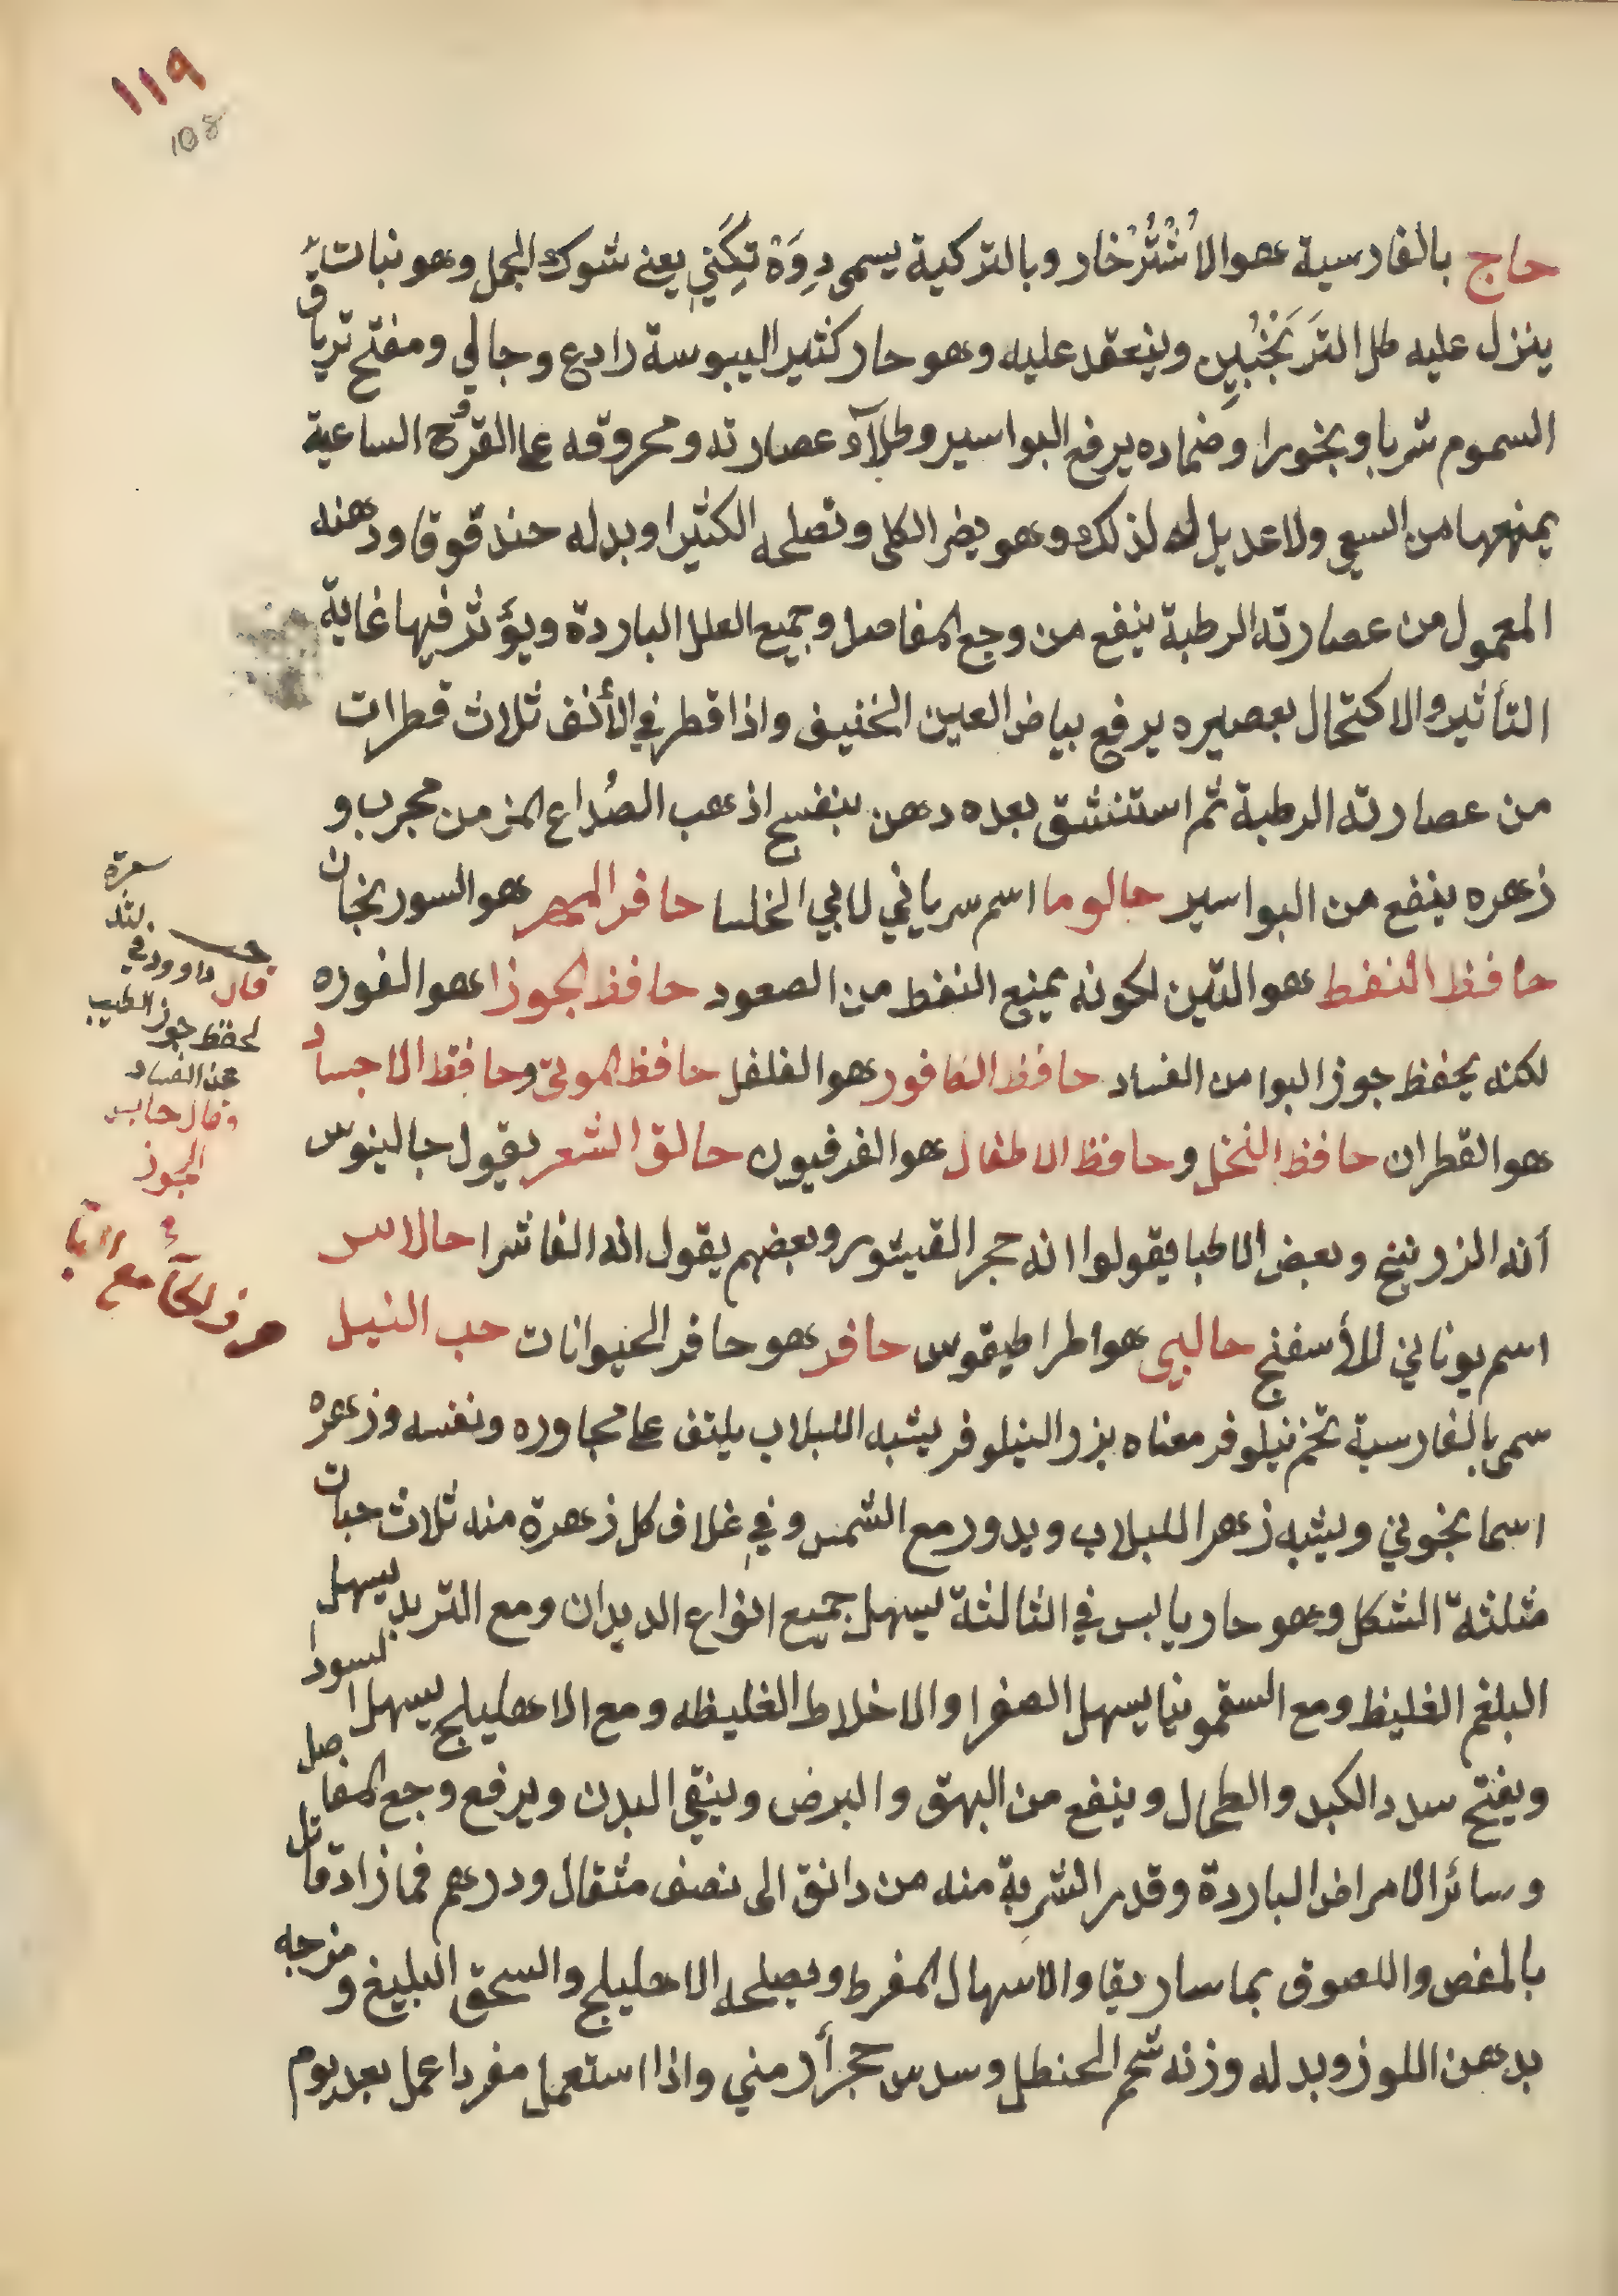 ١١٩
108
حاج بالفارسية هو الاُشْتُرْخار وبالتركية يسمى دِوَهْ تِكَنِي يعني شوك الجمل وهو نبات
ينزل عليه طل التَرَنْجُبِين وينعقد عليه وهو حار كثير اليبوسة رادع وجالي ومفتح ترياق
السموم شربا وبخورا وضماده يرفع البواسير وطلآء عصارته ومحروقه على القروح الساعية
يمنعها من السعي ولا عديل له لذلك وهو يضر الكلى وتصلحه الكثيرا وبدله حندقوقا ودهنه
المعمول من عصارته الرطبة ينفع من وجع المفاصل وجميع العلل الباردة ويؤثر فيها غاية
التأثير والاكتحال بعصيره يرفع بياض العين الخفيف واذا قطر في الأنف ثلاث قطرات
من عصارته الرطبة ثم استنشق بعده دهن بنفسج اذهب الصُداع المزمن مجرب و
زهره ينفع من البواسير حالوما اسم سرياني لابي الخلسا حافر المهر هو السورنجان
حافظ النفط هو التين لكونه يمنع النفط من الصعود حافظ الجوز اهو الفوره
لكنه يحفظ جوز البوا من الفساد حافظ الكافور هو الفلفل حافظ الموتى وحافظ الاجساد
هو القطران حافظ النخل وحافظ الاطفال هو الفرفيون حالق الشعر يقول جالينوس
أنه الزرنيخ وبعض الاطبا يقولوا انه حجر القيشور وبعضهم يقول انه الفاشرا حالاس
اسم يوناني للأسفنج حالبي هو اطراطيقوس حافر هو حافر الحيوانات حب النيل
سمي بالفارسية تخم نيلوفر معناه بزر النيلوفر يشبه اللبلاب يلتف على مجاوره ونفسه وزهره
اسمانجوني ويشبه زهر اللبلاب ويدور مع الشمس وفي غلاف كل زهرة منه ثلاث حبات
مثلثة الشكل وهو حار يابس في الثالثة يسهل جميع انواع الديدان ومع التربد يسهل
البلغم الغليظ ومع السقمونيا يسهل الصفرا والاخلاط الغليظه ومع الاهليلج يسهل السودا
ويفتح سدد الكبد والطحال وينفع من البهق والبرص وينقي البدن ويرفع وجع المفاصل
وسائر الامراض الباردة وقدر الشربة منه من دانق الى نصف مثقال ودرهم فما زاد قاتل
بالمغص واللصوق بماساريقا والاسهال المفرط ويصلحه الاهليلج والسحق البليغ ومزجه
بدهن اللوز وبدله وزنه شحم الحنطل وسدس حجر أرمني واذا استعمل مفردا عمل بعد يوم
قال داوود في
لحفظ جوز الطيب
عن الفساد
وقال حابس
الجوز